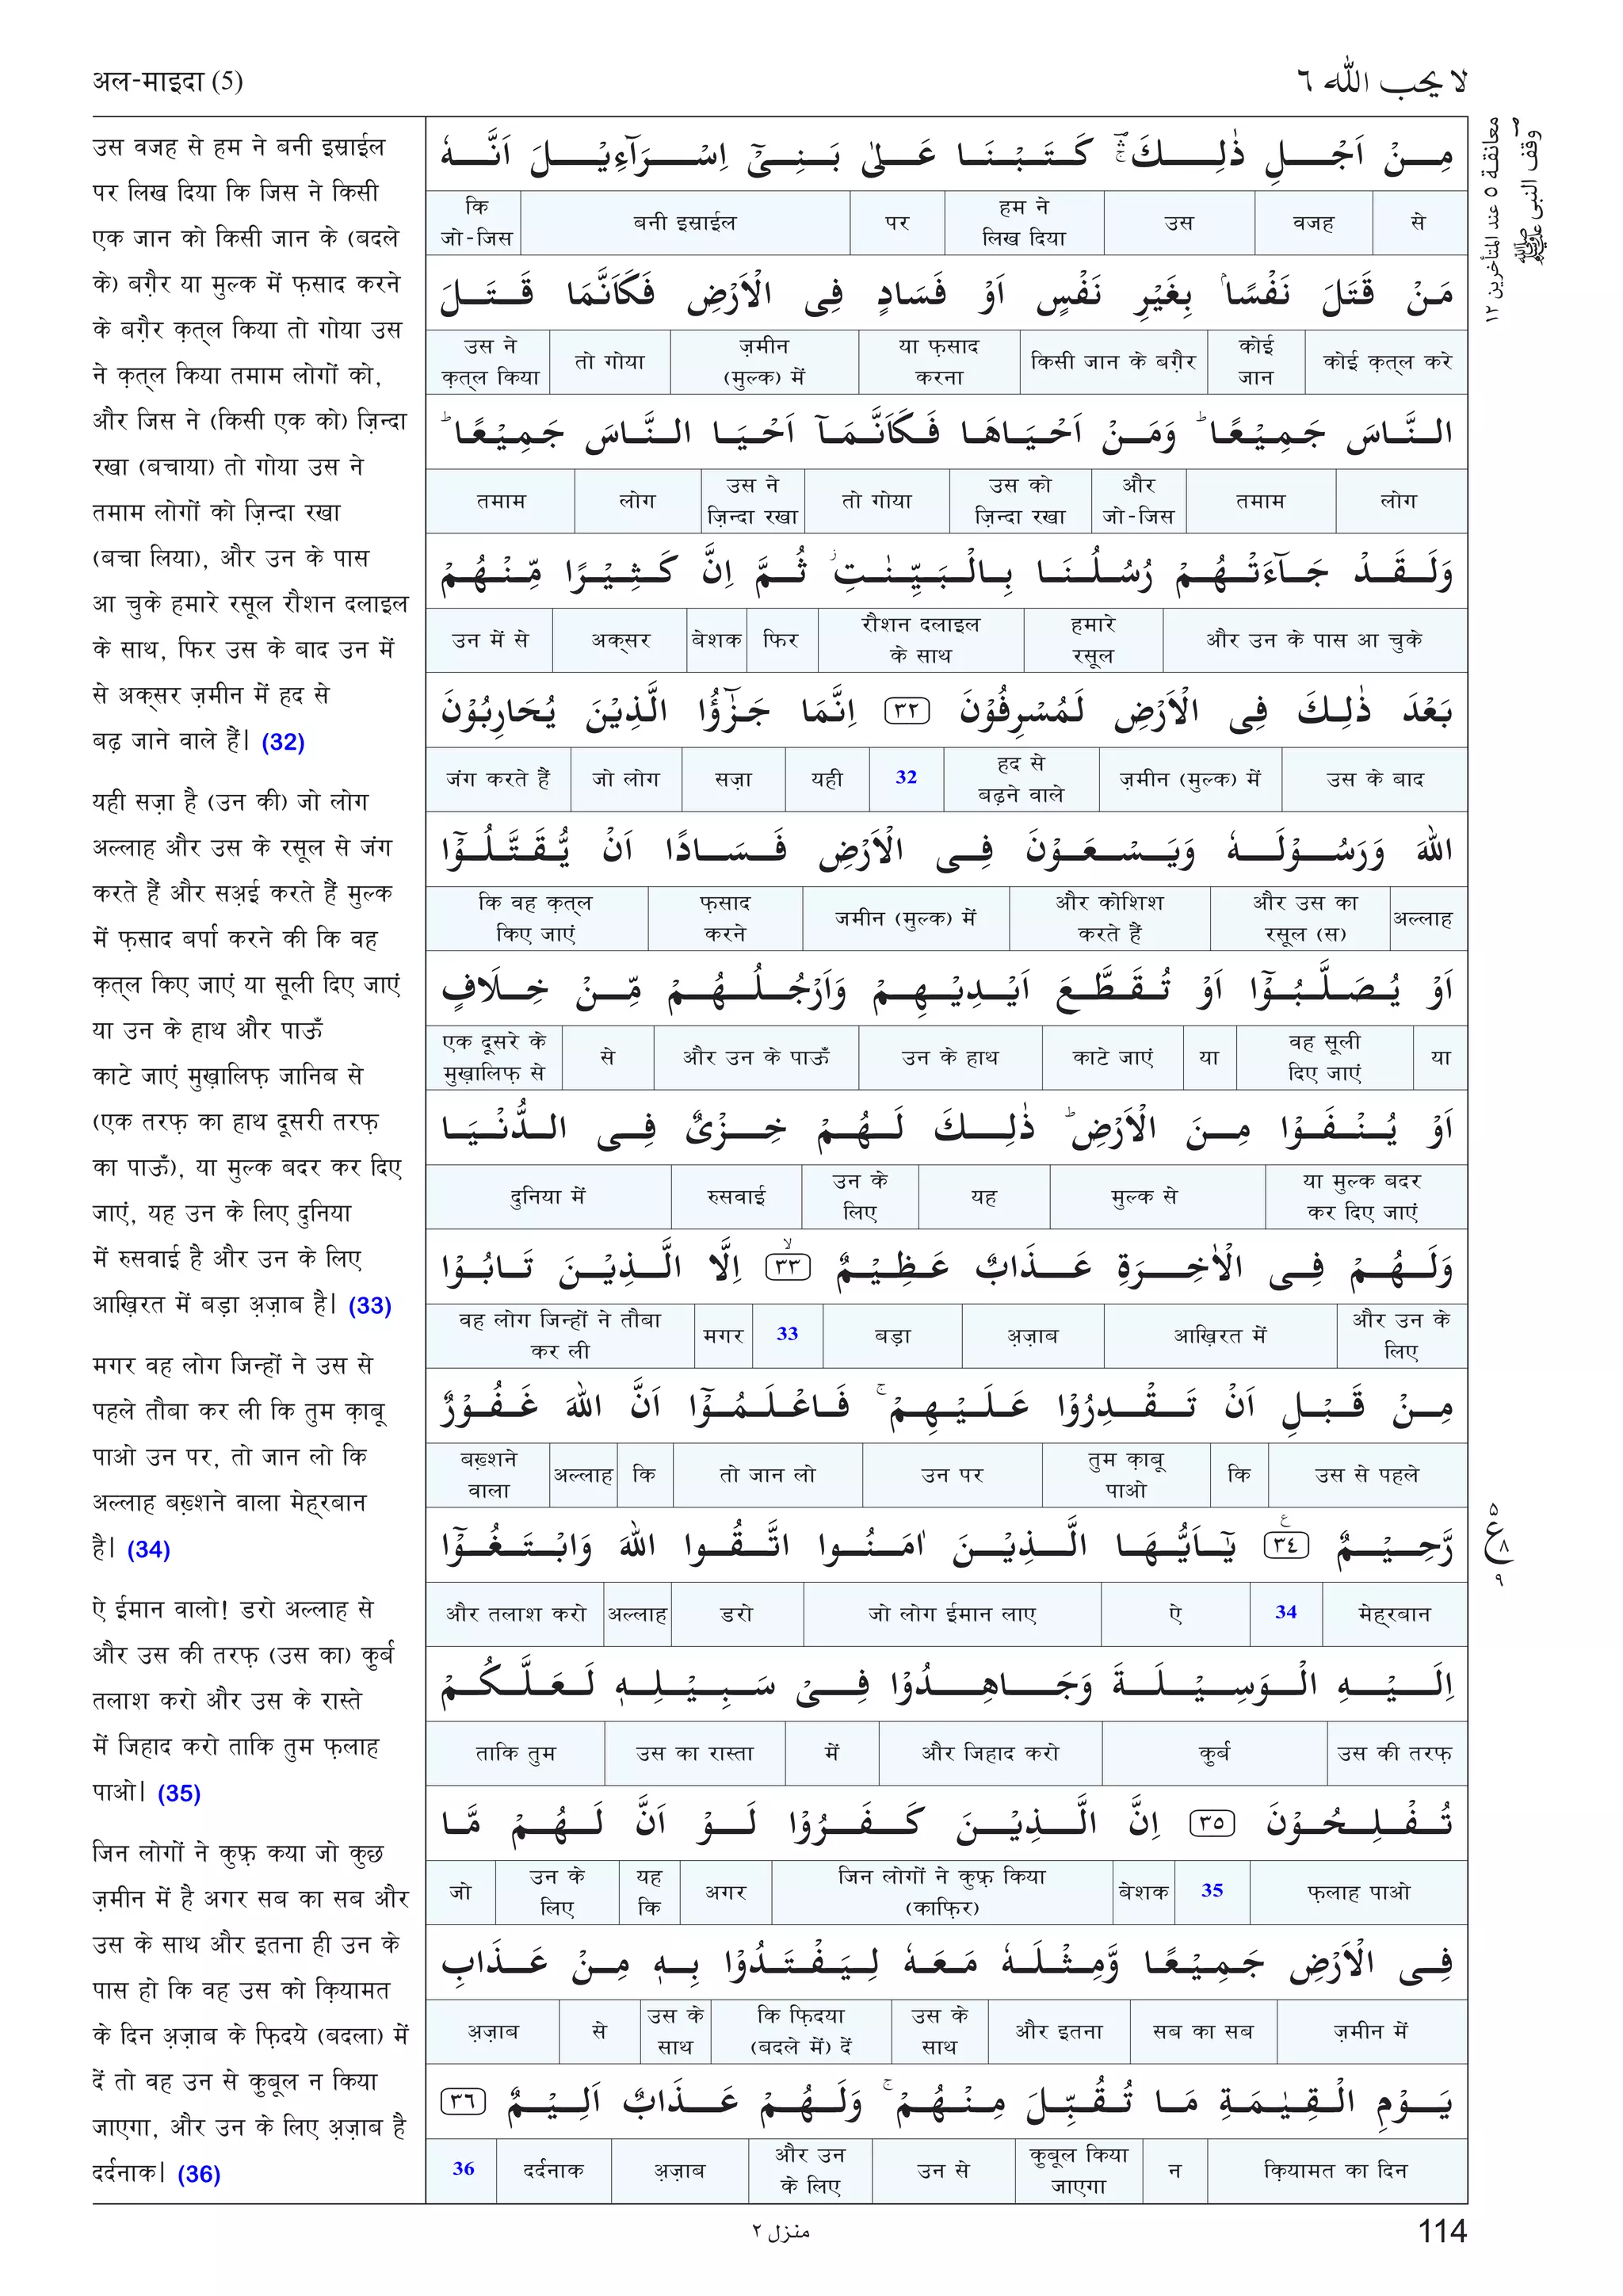 अल-माइदा (5)
لا يحب الله ٦
معانقة ٥ عند المتأخرين ١٢
وقف النبى ﷺ
उस वजह से हम ने बनी इस्राईल
पर लिख दिया कि जिस ने किसी
एक जान को किसी जान के (बदले
के) बग़ैर या मुल्क में फ़साद करने
के बग़ैर क़त्ल किया तो गोया उस
ने क़त्ल किया तमाम लोगों को,
और जिस ने (किसी एक को) ज़िन्दा
रखा (बचाया) तो गोया उस ने
तमाम लोगों को ज़िन्दा रखा
(बचा लिया), और उन के पास
आ चुके हमारे रसूल रौशन दलाइल
के साथ, फिर उस के बाद उन में
से अक्सर ज़मीन में हद से
बढ़ जाने वाले हैं। (32)
यही सज़ा है (उन की) जो लोग
अल्लाह और उस के रसूल से जंग
करते हैं और सअ़ई करते हैं मुल्क
में फ़साद बर्पा करने की कि वह
क़त्ल किए जाएं या सूली दिए जाएं
या उन के हाथ और पाऊँ
काटे जाएं मुख़ालिफ़ जानिब से
(एक तरफ़ का हाथ दूसरी तरफ़
का पाऊँ), या मुल्क बदर कर दिए
जाएं, यह उन के लिए दुनिया
में रुसवाई है और उन के लिए
आख़िरत में बड़ा अ़ज़ाब है। (33)
मगर वह लोग जिन्हों ने उस से
पहले तौबा कर ली कि तुम क़ाबू
पाओ उन पर, तो जान लो कि
अल्लाह बख़्शने वाला मेह्रबान
है। (34)
ऐ ईमान वालो! डरो अल्लाह से
और उस की तरफ़ (उस का) कुर्ब
तलाश करो और उस के रास्ते
में जिहाद करो ताकि तुम फ़लाह
पाओ। (35)
जिन लोगों ने कुफ़्र कया जो कुछ
ज़मीन में है अगर सब का सब और
उस के साथ और इतना ही उन के
पास हो कि वह उस को क़ियामत
के दिन अ़ज़ाब के फ़िदये (बदला) में
दें तो वह उन से कुबूल न किया
जाएगा, और उन के लिए अ़ज़ाब है
दर्दनाक। (36)
مِنْ اَجْلِ ذٰلِكَ ۛ كَتَبْنَا عَلٰى بَنِيْٓ اِسْرَآءِيْلَ اَنَّهٗ
से वजह उस हम ने लिख दिया पर बनी इस्राईल कि जो-जिस
مَنْ قَتَلَ نَفْسًا ۢ بِغَيْرِ نَفْسٍ اَوْ فَسَادٍ فِى الْاَرْضِ فَكَاَنَّمَا قَتَلَ
कोई क़त्ल करे कोई जान किसी जान के बग़ैर या फ़साद करना ज़मीन (मुल्क) में तो गोया उस ने क़त्ल किया
النَّاسَ جَمِيْعًا ؕ وَمَنْ اَحْيَاهَا فَكَاَنَّمَآ اَحْيَا النَّاسَ جَمِيْعًا ؕ
लोग तमाम और जो-जिस उस को ज़िन्दा रखा तो गोया उस ने ज़िन्दा रखा लोग तमाम
وَلَقَدْ جَآءَتْهُمْ رُسُلُنَا بِالْبَيِّنٰتِ ؗ ثُمَّ اِنَّ كَثِيْرًا مِّنْهُمْ
और उन के पास आ चुके हमारे रसूल रौशन दलाइल के साथ फिर बेशक अक्सर उन में से
بَعْدَ ذٰلِكَ فِى الْاَرْضِ لَمُسْرِفُوْنَ ٣٢ اِنَّمَا جَزٰٓؤُا الَّذِيْنَ يُحَارِبُوْنَ
उस के बाद ज़मीन (मुल्क) में हद से बढ़ने वाले 32 यही सज़ा जो लोग जंग करते हैं
اللّٰهَ وَرَسُوْلَهٗ وَيَسْعَوْنَ فِى الْاَرْضِ فَسَادًا اَنْ يُّقَتَّلُوْٓا
अल्लाह और उस का रसूल (स) और कोशिश करते हैं जमीन (मुल्क) में फ़साद करने कि वह क़त्ल किए जाएं
اَوْ يُصَلَّبُوْٓا اَوْ تُقَطَّعَ اَيْدِيْهِمْ وَاَرْجُلُهُمْ مِّنْ خِلَافٍ
या वह सूली दिए जाएं या काटे जाएं उन के हाथ और उन के पाऊँ से एक दूसरे के मुख़ालिफ़ से
اَوْ يُنْفَوْا مِنَ الْاَرْضِ ؕ ذٰلِكَ لَهُمْ خِزْىٌ فِى الدُّنْيَا
या मुल्क बदर कर दिए जाएं मुल्क से यह उन के लिए रुसवाई दुनिया में
وَلَهُمْ فِى الْاٰخِرَةِ عَذَابٌ عَظِيْمٌ ٣٣ ۙ اِلَّا الَّذِيْنَ تَابُوْا
और उन के लिए आख़िरत में अ़ज़ाब बड़ा 33 मगर वह लोग जिन्हों ने तौबा कर ली
مِنْ قَبْلِ اَنْ تَقْدِرُوْا عَلَيْهِمْ ۚ فَاعْلَمُوْٓا اَنَّ اللّٰهَ غَفُوْرٌ
उस से पहले कि तुम क़ाबू पाओ उन पर तो जान लो कि अल्लाह बख़्शने वाला
رَّحِيْمٌ ٣٤ ع يٰٓاَيُّهَا الَّذِيْنَ اٰمَنُوا اتَّقُوا اللّٰهَ وَابْتَغُوْٓا
मेह्रबान 34 ऐ जो लोग ईमान लाए डरो अल्लाह और तलाश करो
٥ ع ٨ ٩
اِلَيْهِ الْوَسِيْلَةَ وَجَاهِدُوْا فِيْ سَبِيْلِهٖ لَعَلَّكُمْ
उस की तरफ़ कुर्ब और जिहाद करो में उस का रास्ता ताकि तुम
تُفْلِحُوْنَ ٣٥ اِنَّ الَّذِيْنَ كَفَرُوْا لَوْ اَنَّ لَهُمْ مَّا
फ़लाह पाओ 35 बेशक जिन लोगों ने कुफ़्र किया (काफ़िर) अगर यह कि उन के लिए जो
فِى الْاَرْضِ جَمِيْعًا وَّمِثْلَهٗ مَعَهٗ لِيَفْتَدُوْا بِهٖ مِنْ عَذَابِ
ज़मीन में सब का सब और इतना उस के साथ कि फ़िदया (बदले में) दें उस के साथ से अ़ज़ाब
يَوْمِ الْقِيٰمَةِ مَا تُقُبِّلَ مِنْهُمْ ۚ وَلَهُمْ عَذَابٌ اَلِيْمٌ ٣٦
क़ियामत का दिन न कुबूल किया जाएगा उन से और उन के लिए अ़ज़ाब दर्दनाक 36
منزل ٢
114